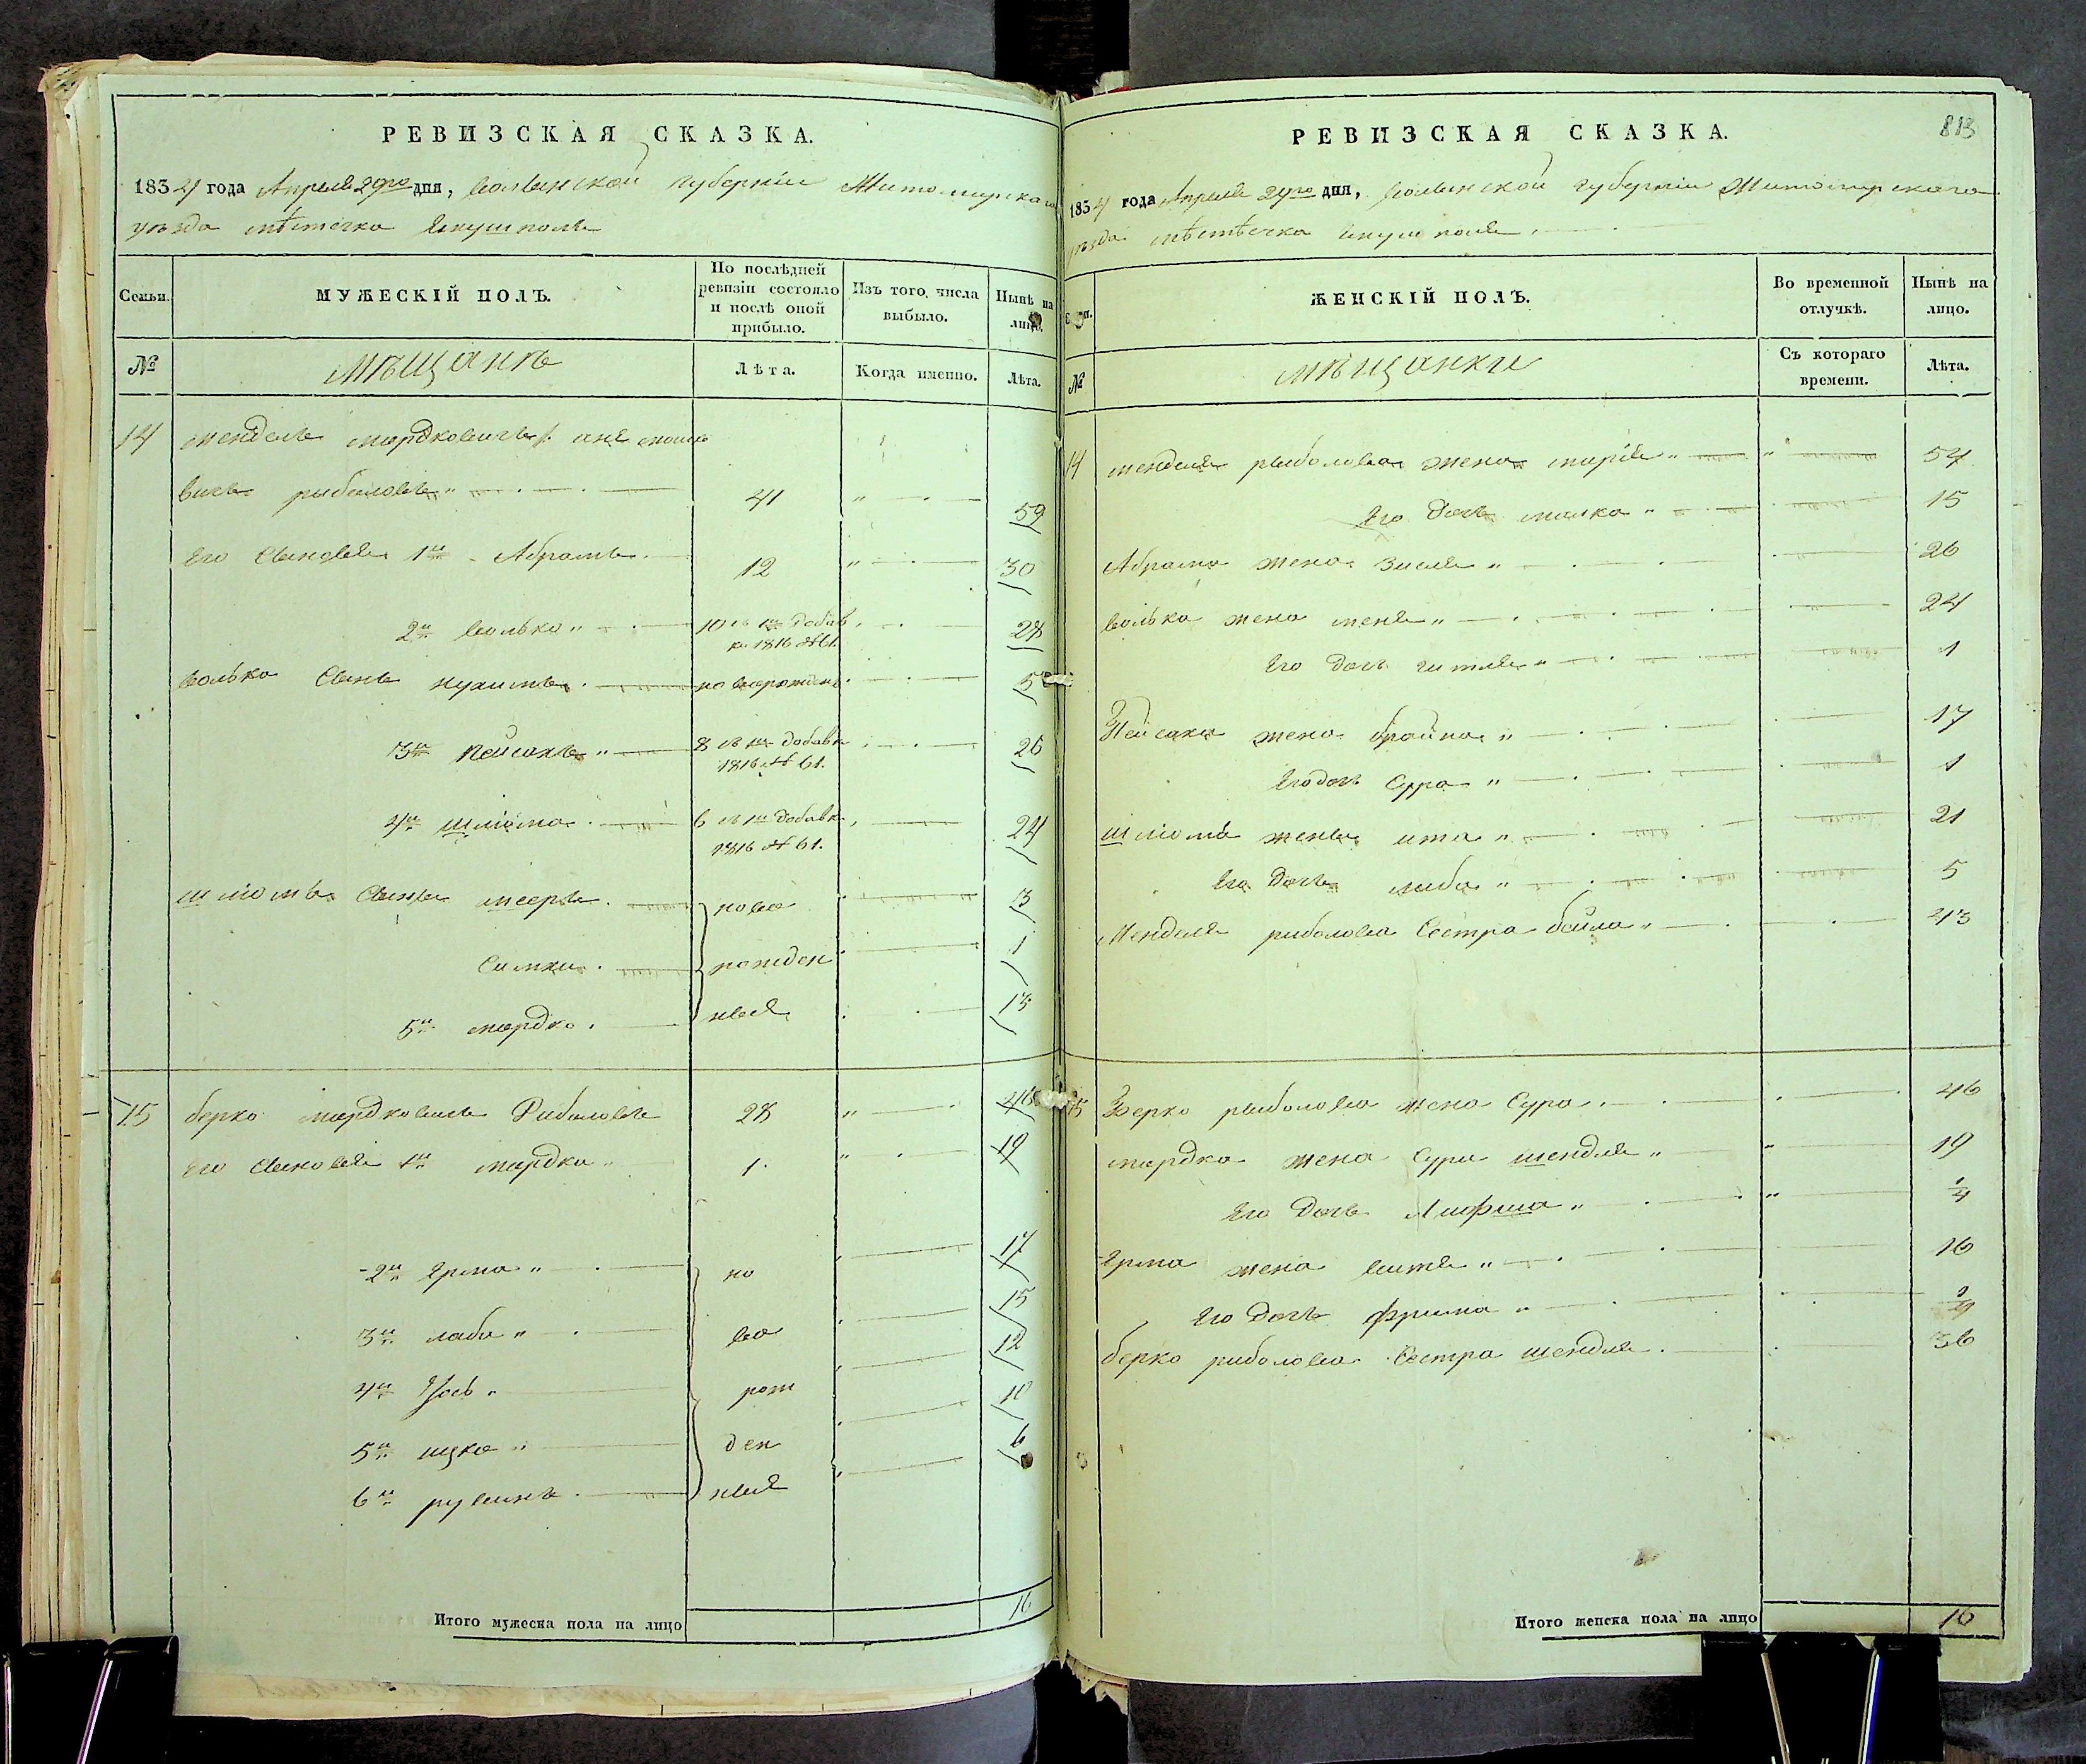 РЕВИЗСКАЯ СКАЗКА.
1834 года Апреля 29го дня, Волынской губернии Житомирскаго
уезда мѣстечка Янушполя
Семьи.
МУЖЕСКІЙ ПОЛЪ.
По послѣдней ревизіи состояло и послѣ оной прибыло.
Изъ того числа выбыло.
Нынѣ на лицо.
№
Мѣщанъ
Лѣта.
Когда именно.
Лѣта.
14 мендель мардковичъ а не мошко
вичь рыболовъ 41 59
Его Сыновья 1й Абрамъ 12 30
2й волько 10 въ 1й добав. 28
1816 № 61.
волька Сынъ нухимъ новорожден 5
3й пейсахъ 8 въ 1й добавк 26
1816 № 61.
4й шліома 6 въ 1й добавк 24
1816 № 61.
шліомы Сынъ мееръ ново 3
Симхи рожден 1
5й мардко ныя 13
15 берко мардковичъ Риболовъ 28 46
Его Сыновья 1й мардко 1 19
2й Ярма но 17
3й лаба во 15
4й Іось рож 12
5й ицко ден 10
6й рувинъ ныя 6
Итого мужеска пола на лицо 16
РЕВИЗСКАЯ СКАЗКА. 813
1834 года Апреля 29го дня, Волынской губернии Житомирскаго
уезда мѣстѣчка Янушполя
ЖЕНСКІЙ ПОЛЪ.
Во временной отлучкѣ.
Нынѣ на лицо.
№
мѣщанки
Съ котораго времени.
Лѣта.
14 менделя рыболова жена марія 54
Его дочь малка 15
Абрама жена Зисля 26
волька жена меня 24
Его дочь гитля 1
Пейсаха жена брайна 17
Его дочь Сура 1
шліомы жена ита 21
Его дочь либа 5
Менделя риболова Сестра бейла 43
15 Берко рыболова жена Сура 46
мардка жена Сура шендля 19
Его дочь Лифша 1/4
Ярма жена витя 16
Его дочь фрима
берко риболова Сестра шендля 36
Итого женска пола на лицо 16